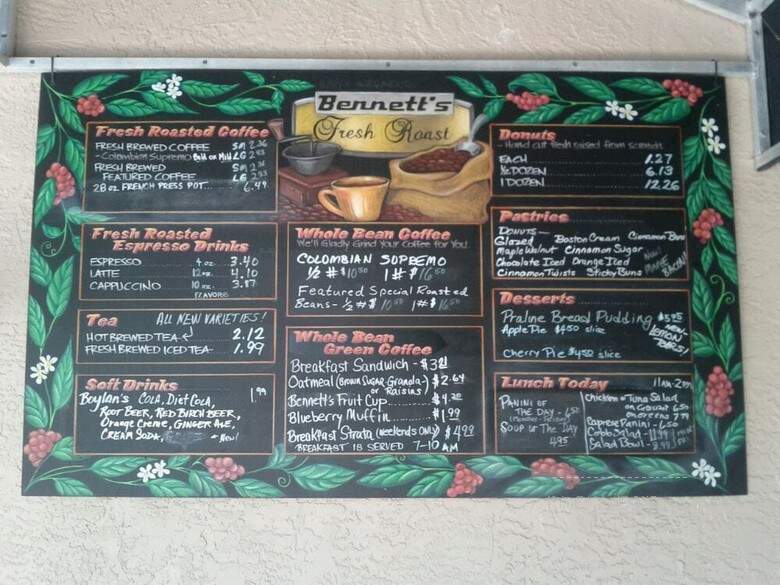 Bennett's
Fresh Roast
Fresh Roasted Coffee
FRESH BREWED COFFEE SM 2.36
- Colombian Supremo LG 2.93
FRESH BREWED
FEATURED COFFEE LG 2.93
28 oz. FRENCH PRESS POT... 6.49
Fresh Roasted
Espresso Drinks
ESPRESSO 4 oz. 3.40
LATTE 12 oz. 4.10
CAPPUCCINO 10 oz. 3.87
FLAVORS
Tea ALL NEW VARIETIES!
HOT BREWED TEA 2.12
FRESH BREWED ICED TEA 1.99
Soft Drinks
Boylan's COLA, DIET COLA, 1.99
ROOT BEER, RED BIRCH BEER,
Orange Creme, GINGER ALE,
CREAM SODA, - New!
Whole Bean Coffee
We'll Gladly Grind Your Coffee for You
COLOMBIAN SUPREMO
½ # $10.50 1 # $16.50
Featured Special Roasted
Beans - ½ # $10.50 1 # $16.50
Whole Bean
Green Coffee
Breakfast Sandwich - $3.21
Oatmeal (Brown Sugar-Granola- or Raisins) $2.64
Bennett's Fruit Cup $4.20
Blueberry Muffin $1.99
Breakfast Strata (weekends ONLY) $4.99
BREAKFAST IS SERVED 7-10 AM
Donuts
- Hand cut fresh raised from scratch
EACH 1.27
½ DOZEN 6.13
1 DOZEN 12.26
Pastries
DONUTS
Glazed Boston Cream Cinnamon Buns
Maple Walnut Cinnamon Sugar
Chocolate Iced Orange Iced
Cinnamon Twists Sticky Buns
NOW MAPLE BACON!
Desserts
Praline Bread Pudding $5.95
Apple Pie $4.50 slice
NEW LEMON BARS!
Cherry Pie $4.50 slice
Lunch Today 11AM-2PM
PANINI OF
THE DAY - 6.50
SOUP OF THE DAY
4.95
Chicken or Tuna Salad
on Croissant 6.50
on Greens 7.99
Caprese Panini - 6.50
Cobb Salad - 11.99
Salad Bowl - 8.99